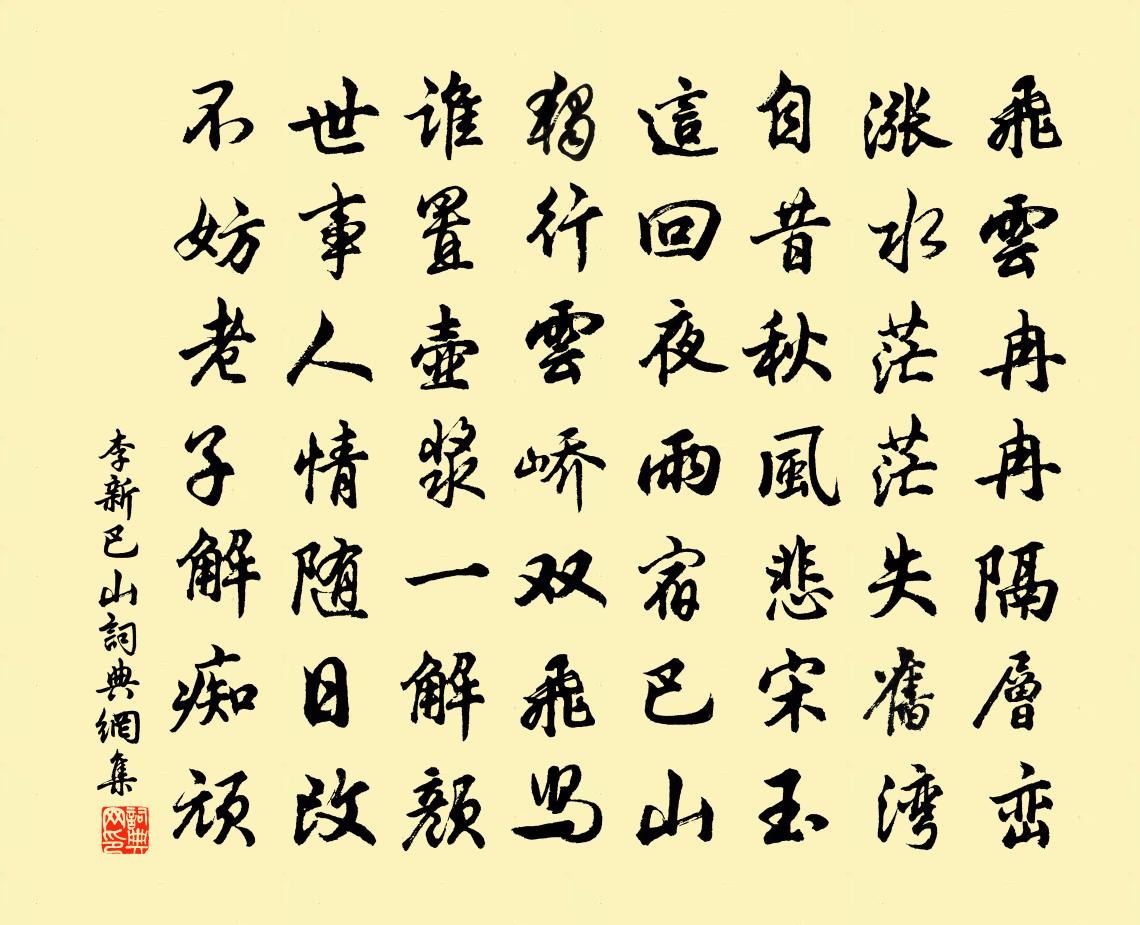 飛雲冉冉隔層峦
漲水茫茫失舊湾
自昔秋風悲宋玉
這回夜雨宿巴山
獨行雲嶠双飛舄
誰置壺漿一解顏
世事人情随日改
不妨老子解痴頑
李新巴山詞典網集
詞典网印